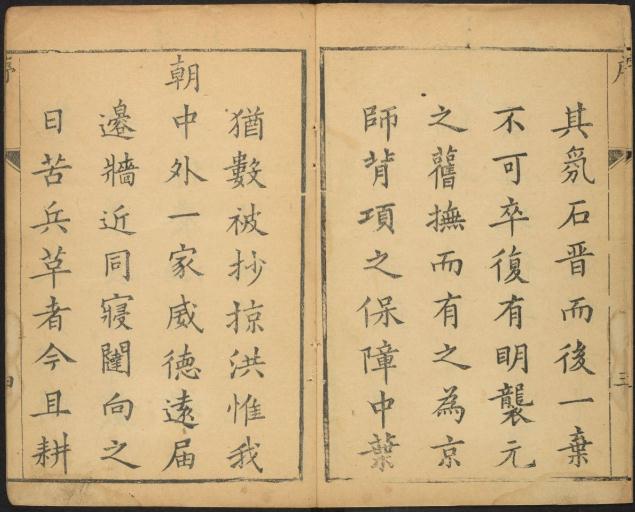 其氛石晋而後一棄
不可卒復有明襲元
之舊撫而有之為京
師背項之保障中葉
猶數被抄掠洪惟我
朝中外一家威德遠届
邊牆近同寢闥向之
日苦兵草者今且耕
序
三
序
四